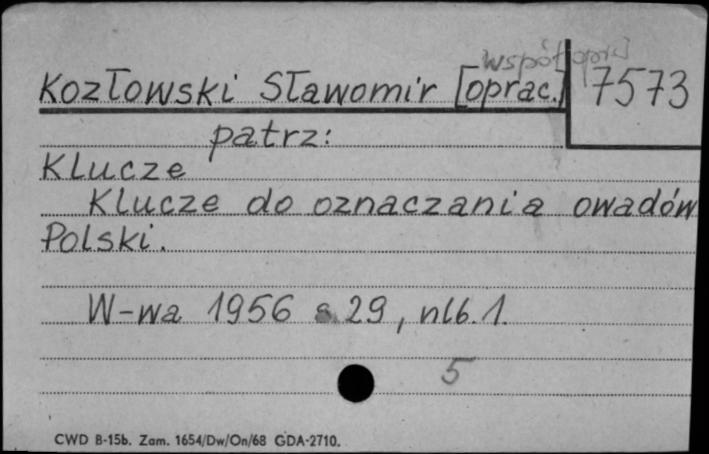 współopric]
Kozłowski Sławomir [oprac.] 7573
patrz:
Klucze
Klucze do oznaczania owadów
Polski.
W-wa 1956 s. 29, nlb. 1.
5
CWD B-15b. Zam. 1654/Dw/On/68 GDA-2710.